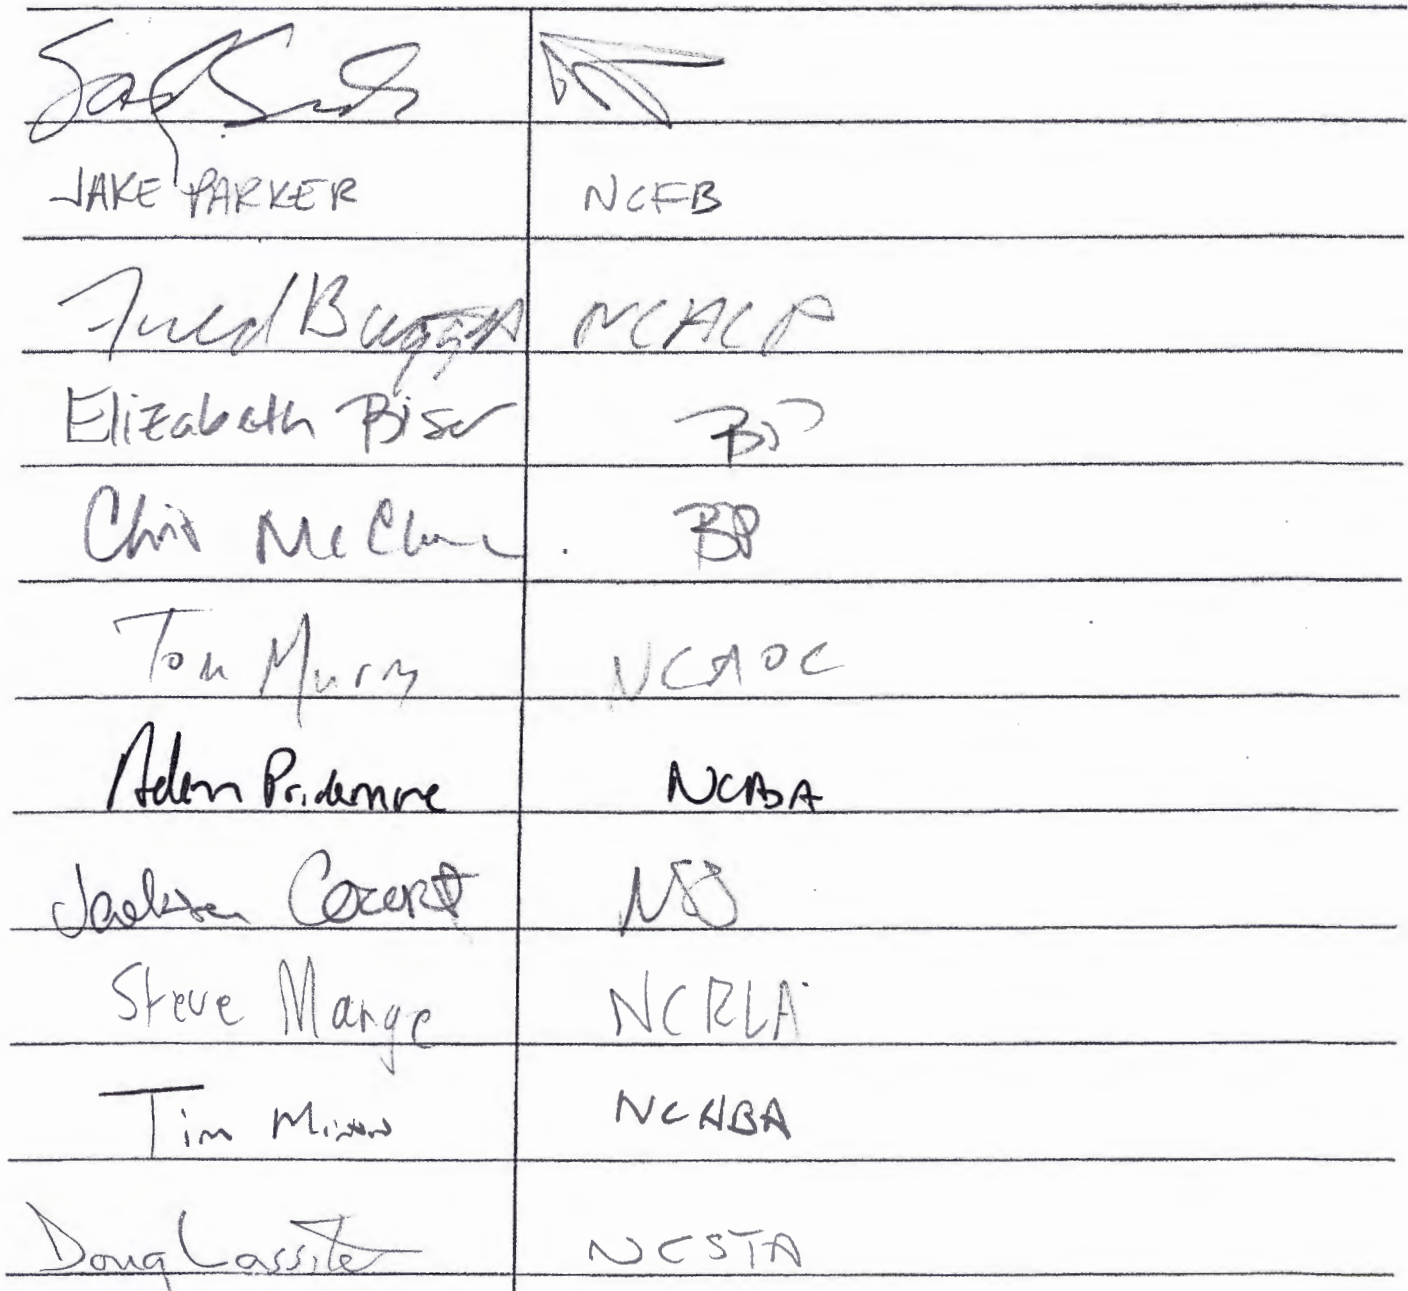 JAKE PARKER NCFB
Fred Buggs NCACP
Elizabeth Biser BP
Chris McClure BP
Tom Murry NCAOC
Adam Pridemore NCBA
Jackson Cozort
Steve Mange NCRLA
Tim Minton NCHBA
Doug Lassiter NCSTA